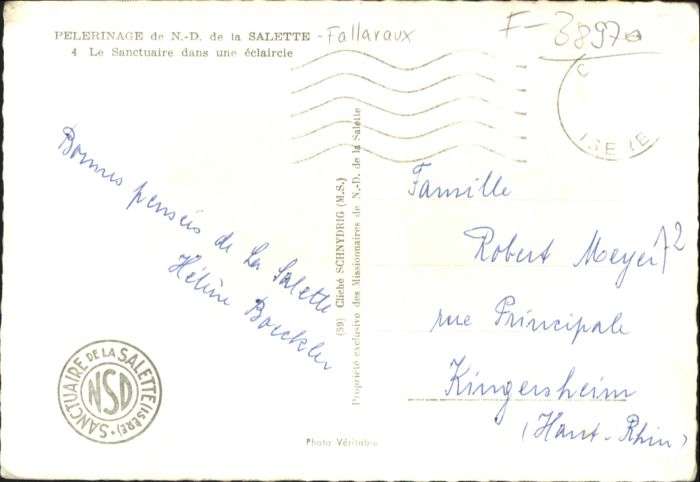 PELERINAGE de N.-D. de la SALETTE - Fallavaux
4 Le Sanctuaire dans une éclaircie
F-38970
ISERE
Bonnes pensées de La Salette
Hélène Boeckler
(59) Cliché SCHNYDRIG (M.S.)
Propriété exclusive des Missionnaires de N.-D. de la Salette
Famille
Robert Meyer 72
rue Principale
Kingersheim
(Haut-Rhin)
SANCTUAIRE DE LA SALETTE (ISÈRE)
NSD
Photo Véritable